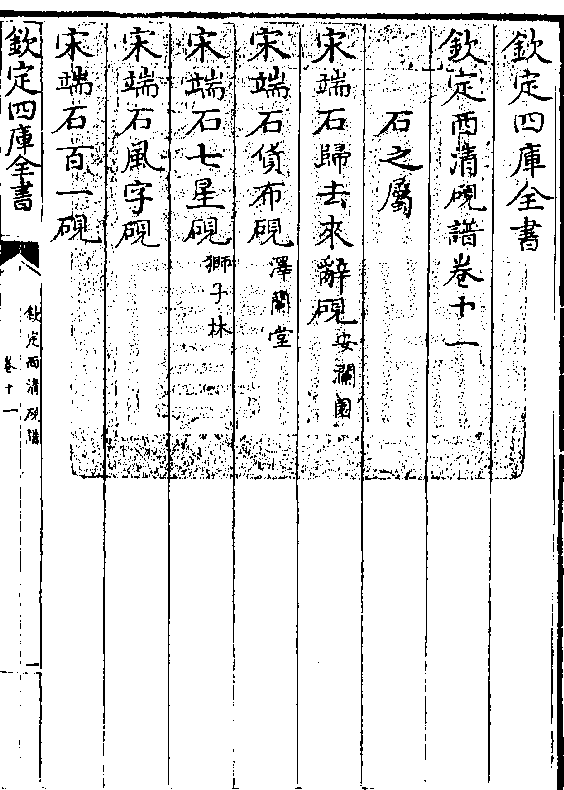 欽定四庫全書
欽定西清硯譜卷十一
石之屬
宋端石歸去來辭硯安瀾園
宋端石貨布硯澤蘭堂
宋端石七星硯獅子林
宋端石風字硯
宋端石百一硯
欽定四庫全書
欽定西清硯譜
卷十一
一